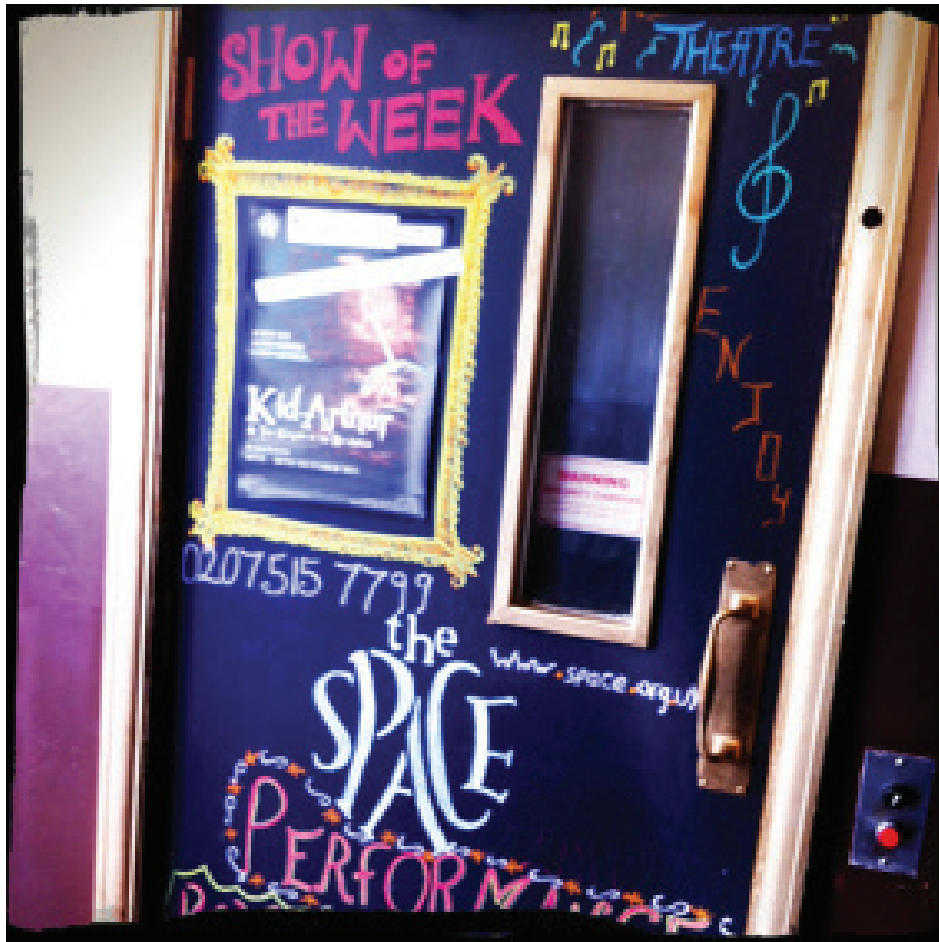 SHOW OF
THE WEEK
THEATRE
ENJOY
Kid Arthur
WARNING
0207515 7799
the
SPACE
www.space.org.uk
PERFORMANCE